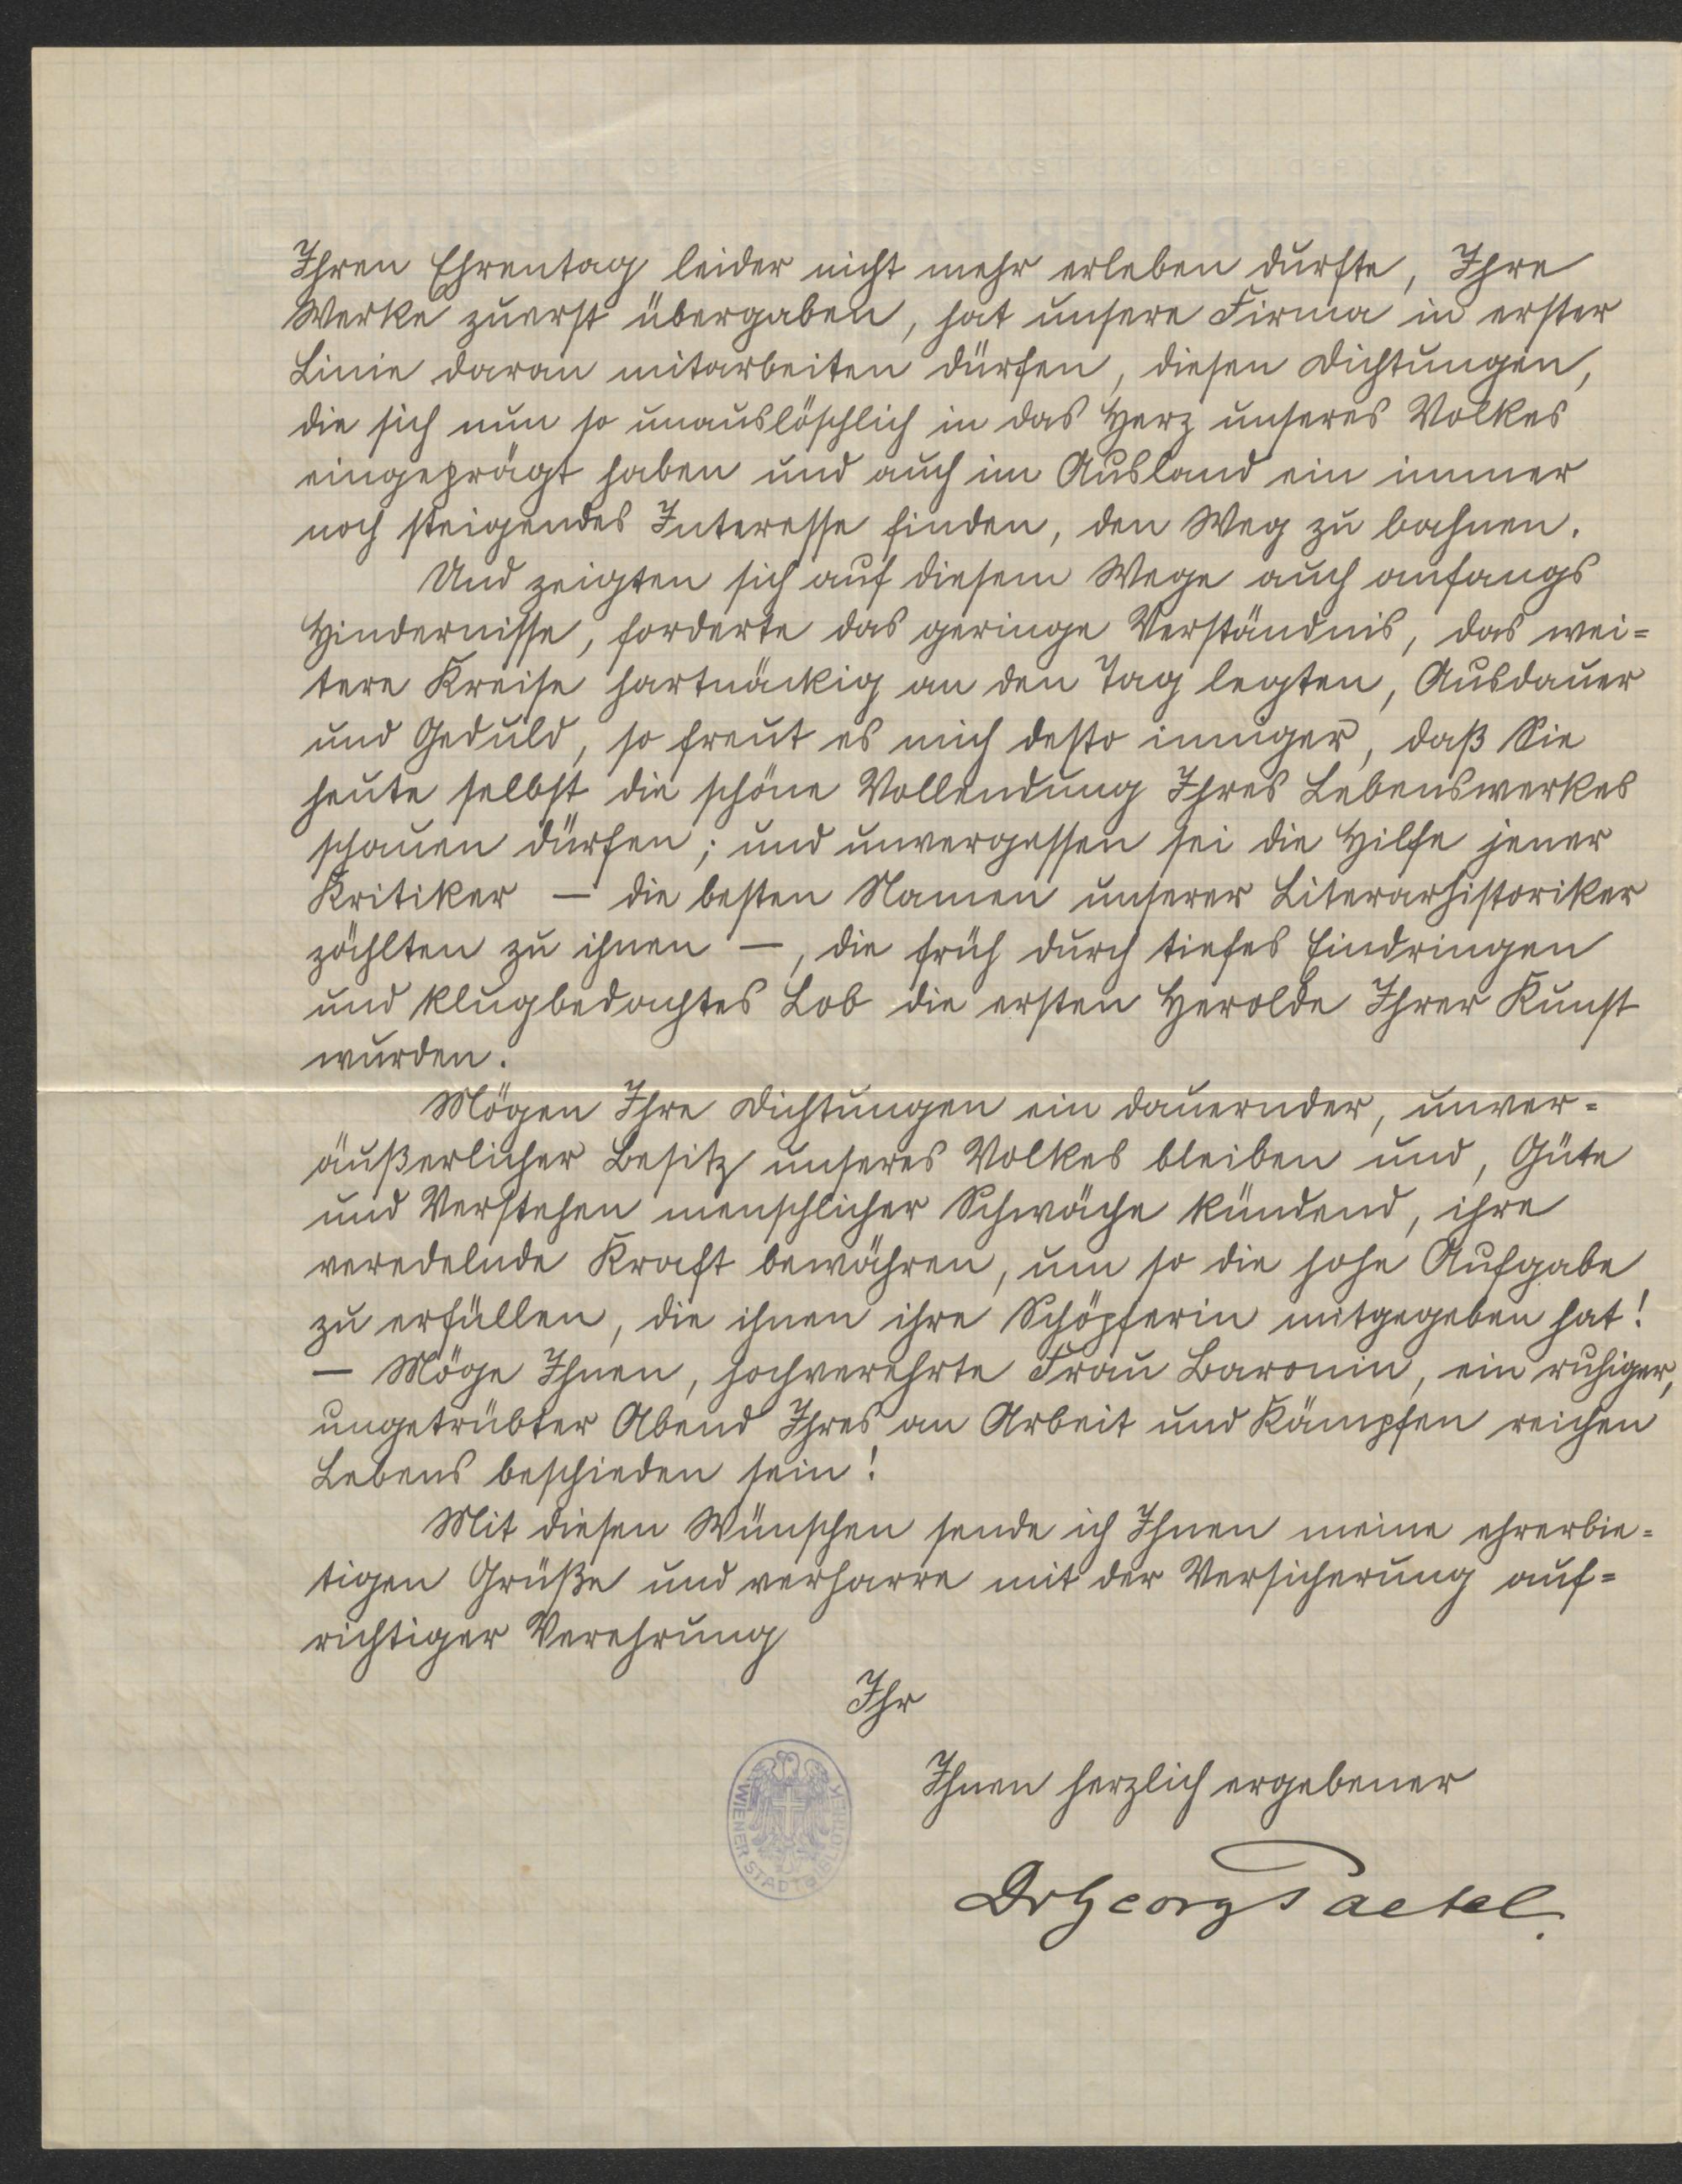 Ihren Ehrentag leider nicht mehr erleben durfte, Ihre
Werke zuerst übergaben, hat unsere Firma in erster
Linie daran mitarbeiten dürfen, diesen Dichtungen,
die sich nun so unauslöschlich in das Herz unseres Volkes
eingeprägt haben und auch im Ausland ein immer
noch steigendes Interesse finden, den Weg zu bahnen.
Und zeigten sich auf diesem Wege auch anfangs
Hindernisse, forderte das geringe Verständnis, das wei=
tere Kreise hartnäckig an den Tag legten, Ausdauer
und Geduld, so freut es mich desto inniger, daß Sie
heute selbst die schöne Vollendung Ihres Lebenswerkes
schauen dürfen; und unvergessen sei die Hilfe jener
Kritiker — die besten Namen unserer Literarhistoriker
zählten zu ihnen —, die früh durch tiefes Eindringen
und klugbedachtes Lob die ersten Herolde Ihrer Kunst
wurden.
Mögen Ihre Dichtungen ein dauernder, unver=
äußerlicher Besitz unseres Volkes bleiben und, Güte
und Verstehen menschlicher Schwäche kündend, ihre
veredelnde Kraft bewähren, um so die hohe Aufgabe
zu erfüllen, die ihnen ihre Schöpferin mitgegeben hat!
— Möge Ihnen, hochverehrte Frau Baronin, ein ruhiger,
ungetrübter Abend Ihres an Arbeit und Kämpfen reichen
Lebens beschieden sein!
Mit diesen Wünschen sende ich Ihnen meine ehrerbie=
tigen Grüße und verharre mit der Versicherung auf=
richtiger Verehrung
Ihr
Ihnen herzlich ergebener
Dr Georg Paetel.
WIENER STADTBIBLIOTHEK